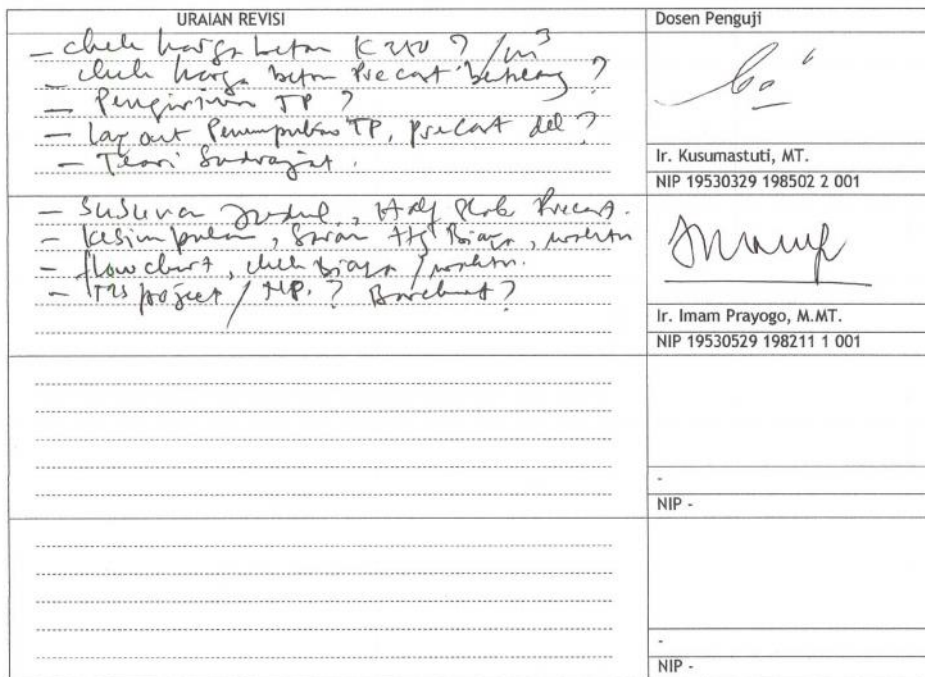 URAIAN REVISI
Dosen Penguji
- chek harga beton K250 ? /m³
- chek harga beton Precast ?
- Pengiriman TP ?
- Lay out Penumpukan TP, Precast dll ?
- Teori Sudrajat.
Ir. Kusumastuti, MT.
NIP 19530329 198502 2 001
- Susunan Judul, Half Slab Precast.
- kesimpulan, Saran ttg Biaya, waktu
- flow chart, chek biaya / waktu.
- project / MP. ? Barchart ?
Ir. Imam Prayogo, M.MT.
NIP 19530529 198211 1 001
-
NIP -
-
NIP -